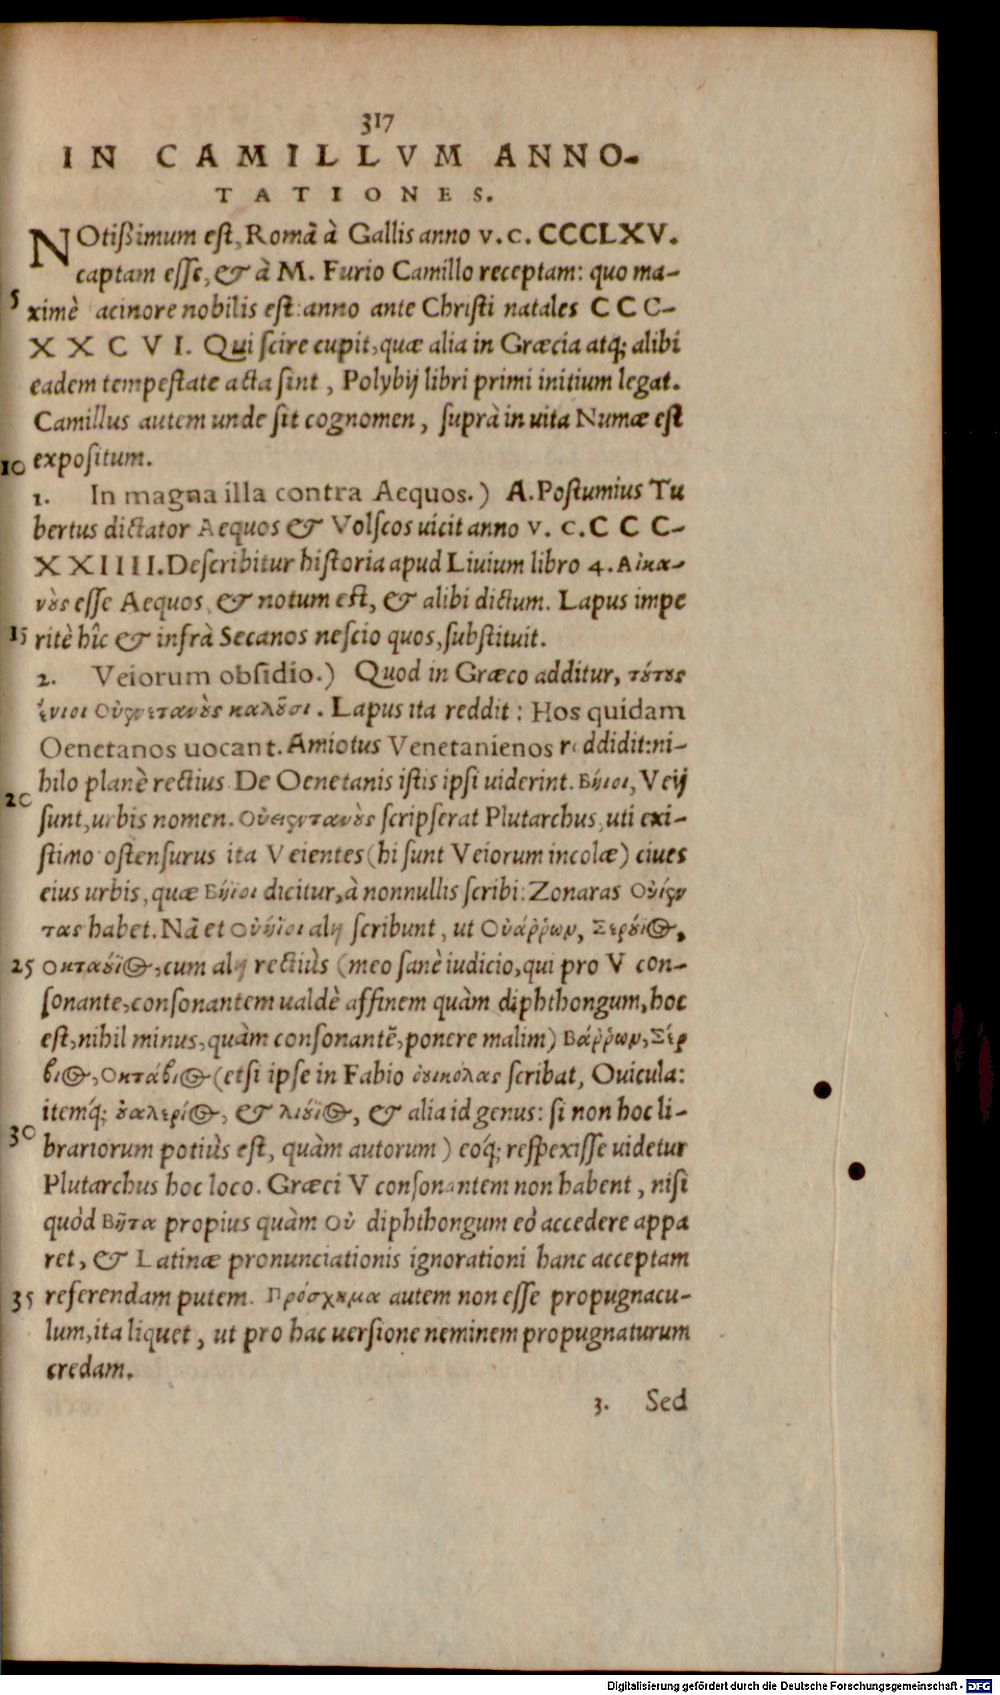 317
IN CAMILLVM ANNO-
TATIONES.
NOtißimum est, Romā à Gallis anno V.C. CCCLXV.
captam esse, & à M. Furio Camillo receptam: quo ma-
5 ximè facinore nobilis est: anno ante Christi natales CCC-
XXCVI. Qui scire cupit, quæ alia in Græcia atq; alibi
eadem tempestate acta sint, Polybij libri primi initium legat.
Camillus autem unde sit cognomen, suprà in uita Numæ est
10 expositum.
1. In magna illa contra Aequos.) A. Postumius Tu
bertus dictator Aequos & Volscos uicit anno V. C. CCC-
XXIIII. Describitur historia apud Liuium libro 4. Αἰκα-
νὸς esse Aequos, & notum est, & alibi dictum. Lapus impe
15 ritè hîc & infrà Secanos nescio quos, substituit.
2. Veiorum obsidio.) Quod in Græco additur, τούτους
ἔνιοι καλοῦσι. Lapus ita reddit: Hos quidam
Oenetanos uocant. Amiotus Venetanienos reddidit: ni-
hilo planè rectius. De Oenetanis istis ipsi uiderint. Βήιοι, Veij
20 sunt, urbis nomen. scripserat Plutarchus, uti exi-
stimo ostensurus ita Veientes (hi sunt Veiorum incolæ) ciues
eius urbis, quæ Βήϊοι dicitur, à nonnullis scribi: Zonaras
τας habet. Nā et Οὐήϊοι alij scribunt, ut Οὐάῤῥων, Σερούϊος,
25 Οκταούϊος, cum alij rectiùs (meo sanè iudicio, qui pro V con-
sonante, consonantem ualdè affinem quàm diphthongum, hoc
est, nihil minus, quàm consonantē, ponere malim) Βάῤῥων, Σέρ
βιος, Οκτάβιος (etsi ipse in Fabio ὀυικόλας scribat, Ouicula:
itemq́; ὀυαλερίος, & λιούϊος, & alia id genus: si non hoc li-
30 brariorum potiùs est, quàm autorum) eoq́; respexisse uidetur
Plutarchus hoc loco. Græci V consonantem non habent, nisi
quòd Βῆτα propius quàm Οὐ diphthongum eò accedere appa
ret, & Latinæ pronunciationis ignorationi hanc acceptam
35 referendam putem. Πρόσχημα autem non esse propugnacu-
lum, ita liquet, ut pro hac uersione neminem propugnaturum
credam.
3. Sed
Digitalisierung gefördert durch die Deutsche Forschungsgemeinschaft - DFG